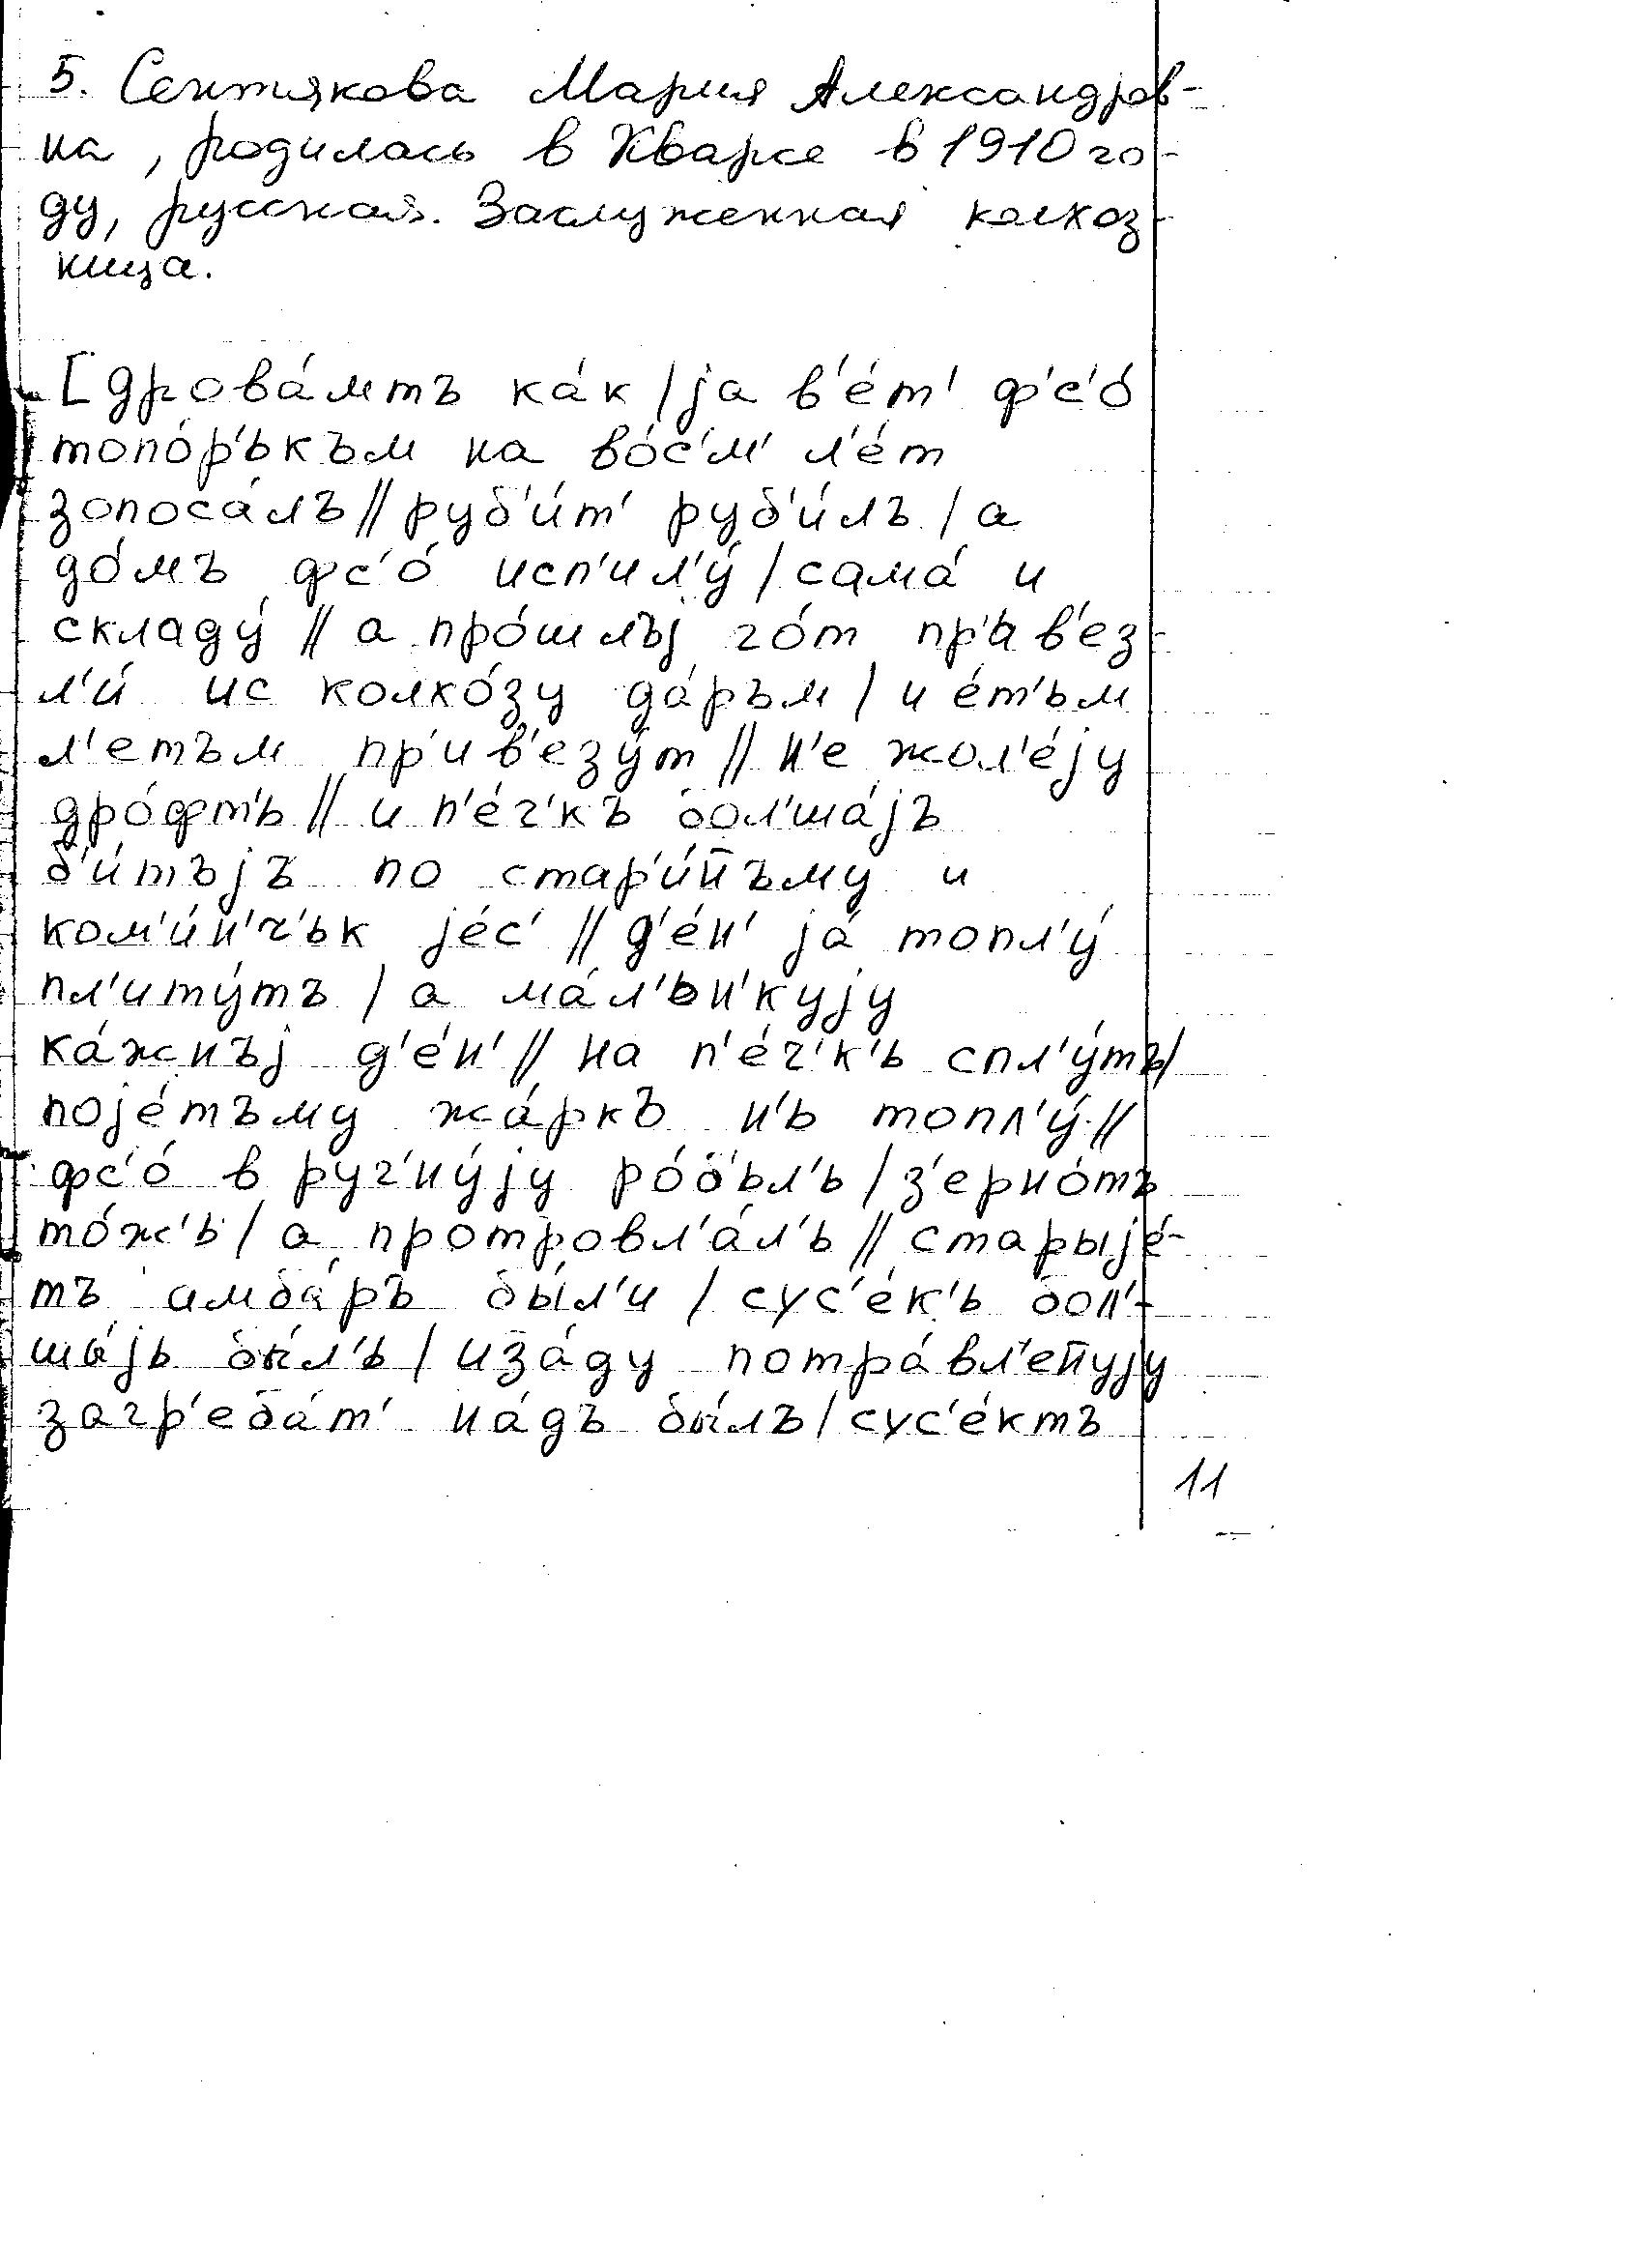 5. Сентякова Мария Александров-
на, родилась в Кварсе в 1910 го-
ду, русская. Заслуженная колхоз-
ница.
[дрова́мтъ ка́к /jа в'е́т' ф'с'о́
топо́р'ькъм на во́с'м' л'е́т
зопоса́лъ // руб'и́т' руб'и́лъ / а
до́мъ фс'о́ исп'ил'у́ / сама́ и
складу́ // а про́шлъj го́т пр'ив'ез-
л'и́ ис колхо́зу да́ръм / и е́т'ьм
л'етъм пр'ив'езу́т // н'е жол'е́jу
дро́фт'ь // и п'е́ч'къ бол'ша́jъ
б'и́тъjъ по стар'и́н̄ъму и
ком'и́н'ч'ьк jе́с' // д'е́н' jа́ топл'у́
пл'иту́тъ / а ма́л'ьн'куjу
ка́жнъj д'е́н' // на п'е́ч'к'ь спл'у́тъ/
поjе́тъму жа́ркъ н'ь топл'у́ //
фс'о́ в руч'ну́jу ро́б'ьл'ь / з'ерно́тъ
то́ж'ь / а протровл'а́л'ь // старыjе́-
тъ амба́ръ бы́л'и / сус'е́к'ь бол'-
шы́jь бы́л'ь / иза́ду потра́вл'ен̄уjу
загр'еба́т' на́дъ бы́лъ / сус'е́ктъ
11